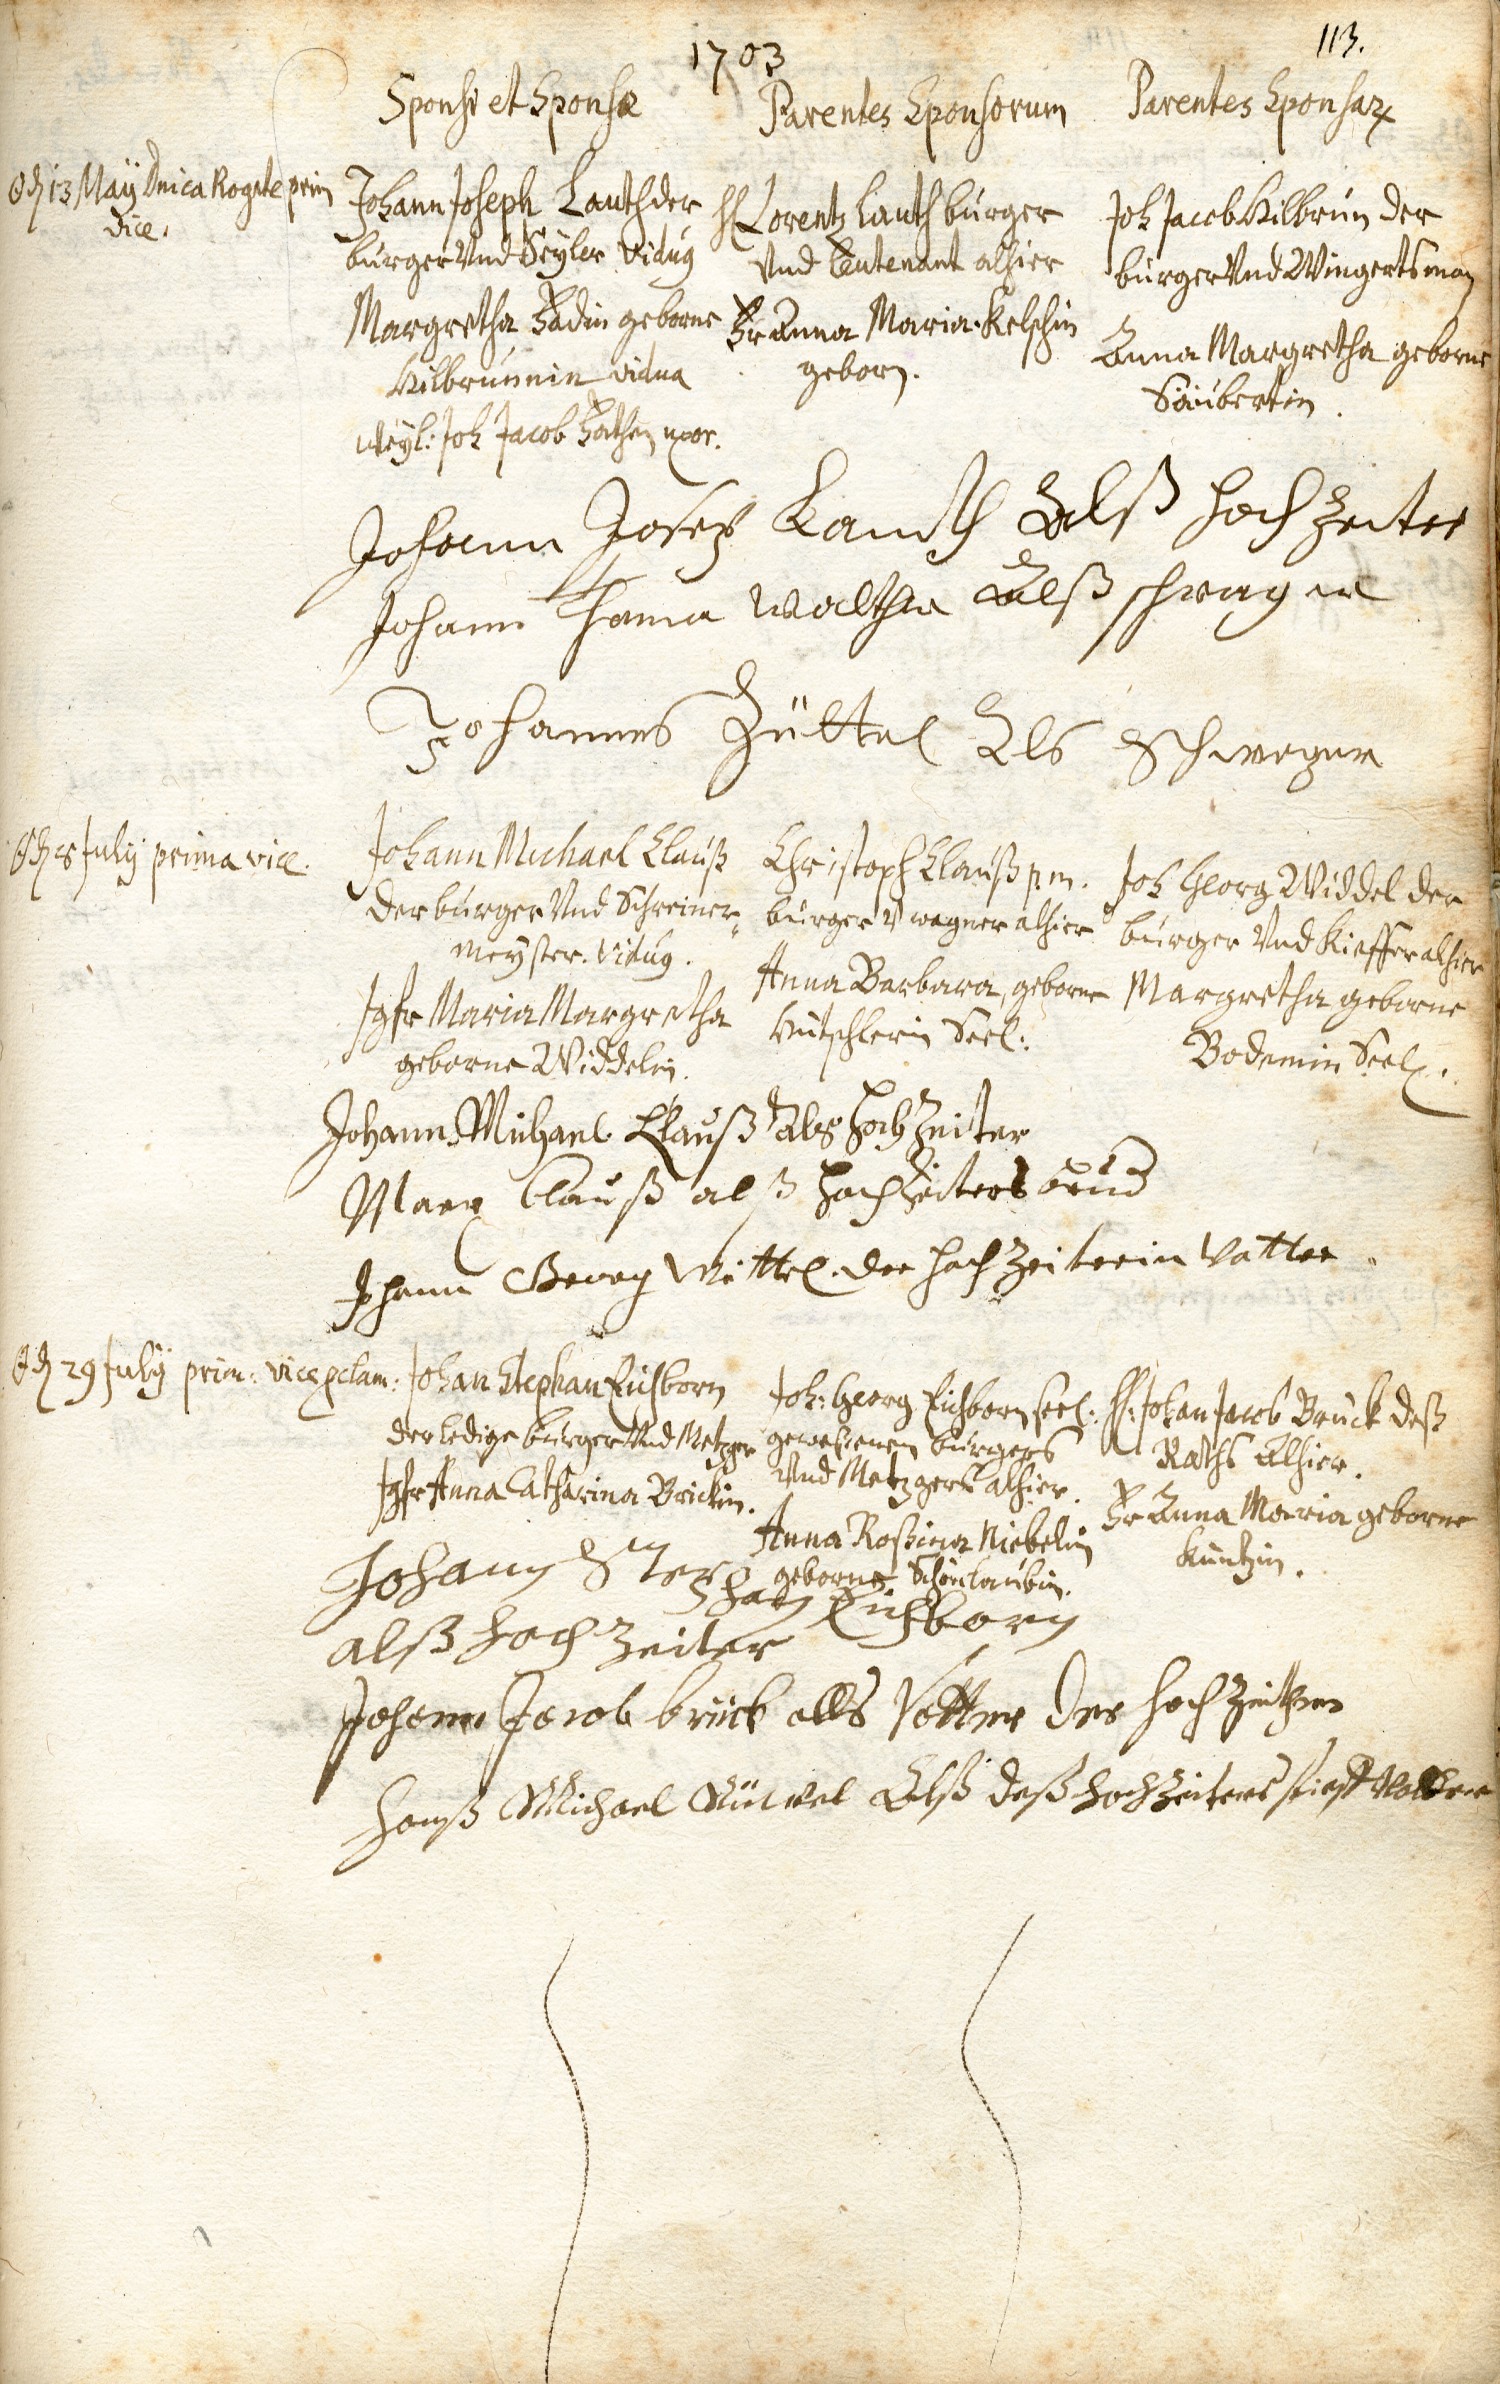 1703
113.
Sponsi et Sponsæ
Parentes Sponsorum
Parentes Sponsar
13 Maÿ Dnica Rogate prim
vice.
Johann Joseph Lauth der
burger Und Seyler viduus
Margretha geborne
Kilbrunnin vidua
weyl: Joh Jacob uxor.
H Lorentz Lauth burger
Und Leutenant alhier
Fr Anna Maria Kelschin
geborn.
Joh Jacob Kilbrun der
burger Und Wingertsman
Anna Margretha geborne
Säubertin.
Johann Josep Lauth Alß hoch Zeiter
Johann walther Alß schwager
Johannes Züttel Als Schweger
8 July prima vice.
Johann Michael Clauß
der burger Und Schreiner
meyster. viduus.
Jgfr Maria Margretha
geborne Widdelin.
Christoph Clauß p.m.
burger v wagner alhier
Anna Barbara, geborne
Seel:
Joh Georg Widdel der
burger Und Kieffer alhier
Margretha geborne
Bodemin Seel.
Johann Michael Clauß Als hochZeiter
Marx Clauß alß hochZeiters brud
Johann Georg Wittel. der hoch Zeiterin Vatter
29 July prim: vice pclam:
Johan Stephan Eichborn
der ledige burger Und Metzger
Jgfr Anna Catharina Brickin.
Joh: Georg Eichborn seel:
gewesenen burgers
Und Metzgers alhier.
Anna Rosina Niebelin
geborne Schönlaubin.
H: Johan Jacob Bruck deß
Raths Alhier.
Fr Anna Maria geborne
Kuntzin.
Johann Stephan Eichborn
alß hoch Zeiter
Johann Jacob brück alls Vatter der hoch Zeitterin
Hanß Michael Alß deß hochZeiters stieff Vatter